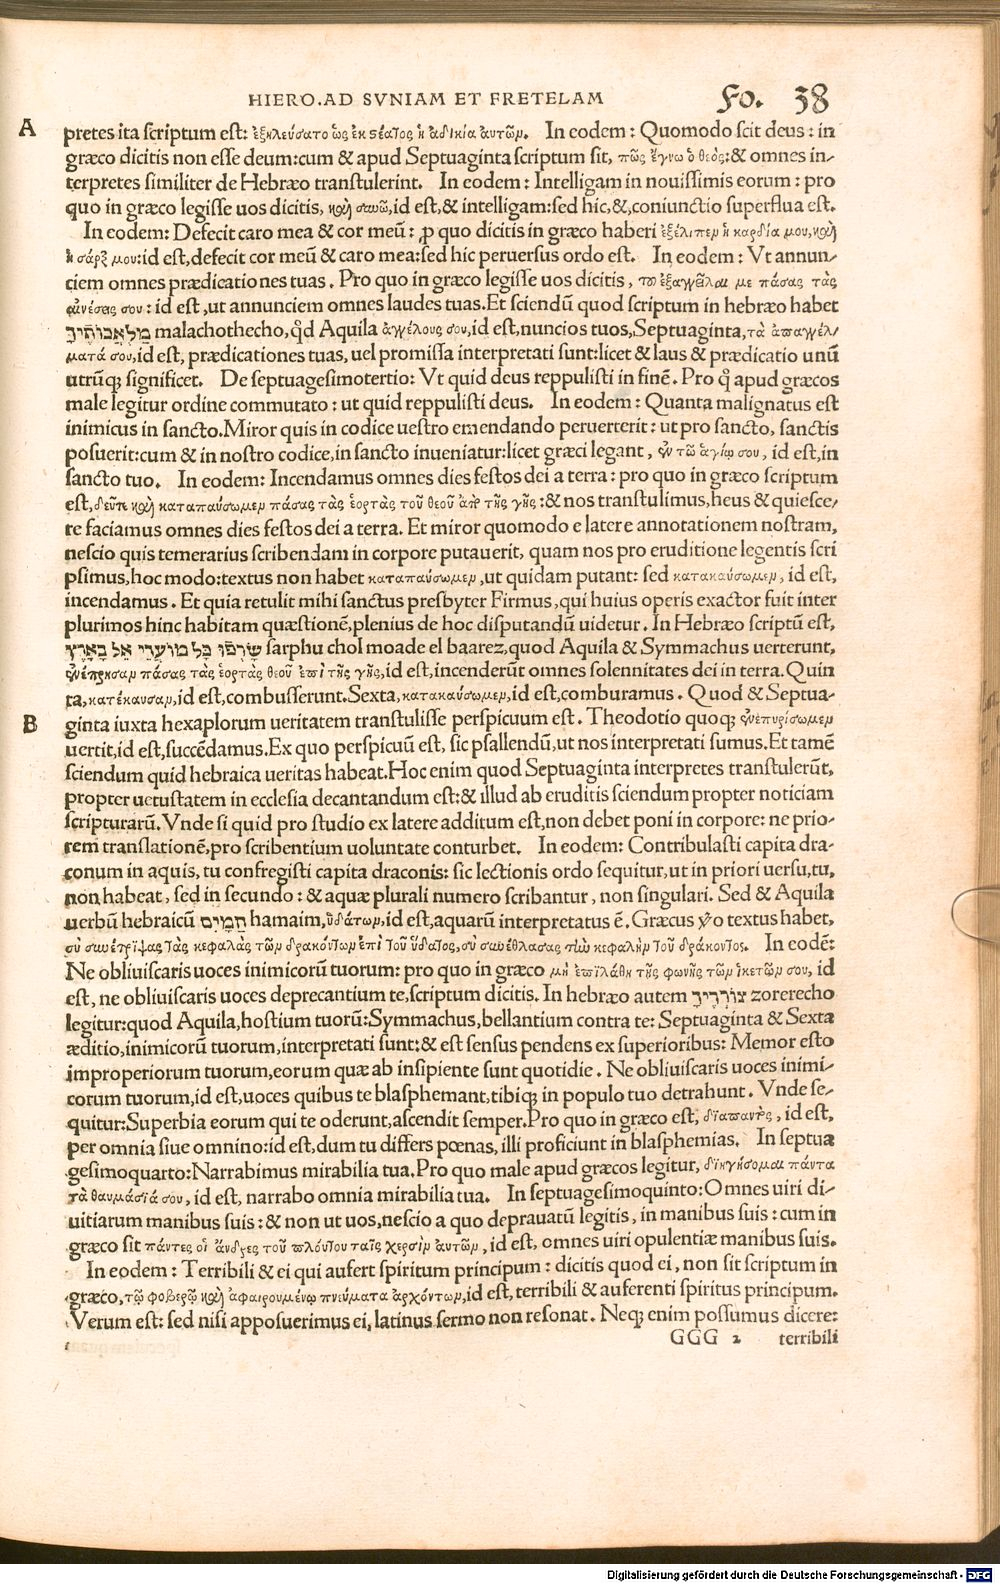 HIERO.AD SVNIAM ET FRETELAM Fo. 38
A
pretes ita scriptum est: ἐξηλεύσατο ὡς ἐκ στέατος ἡ ἀδικία ἀυτῶν. In eodem: Quomodo scit deus: in
græco dicitis non esse deum:cum & apud Septuaginta scriptum sit, πῶς ἔγνω ὁ θεὸς:& omnes in-
terpretes similiter de Hebræo transtulerint. In eodem: Intelligam in nouissimis eorum: pro
quo in græco legisse uos dicitis, καὶ συνῶ,id est,& intelligam:sed hic,&,coniunctio superflua est.
In eodem: Defecit caro mea & cor meũ: ꝓ quo dicitis in græco haberi ἐξέλιπεν ἡ καρδία μου,καὶ
ἡ σάρξ μου:id est,defecit cor meũ & caro mea:sed hic peruersus ordo est. In eodem: Vt annun-
ciem omnes prædicationes tuas. Pro quo in græco legisse uos dicitis, τοῦ ἐξαγγεῖλαι με πάσας τὰς
αἰνέσεις σου: id est,ut annunciem omnes laudes tuas.Et sciendũ quod scriptum in hebræo habet
מַלְאֲכוֹתֶיךָ malachothecho,qd̃ Aquila ἀγγέλους σου,id est,nuncios tuos,Septuaginta,τὰ ἀπαγγέλ-
ματά σου,id est, prædicationes tuas, uel promissa interpretati sunt:licet & laus & prædicatio unũ
utrũqꝫ significet. De septuagesimotertio: Vt quid deus reppulisti in finẽ. Pro qͦ apud græcos
male legitur ordine commutato: ut quid reppulisti deus. In eodem: Quanta malignatus est
inimicus in sancto.Miror quis in codice uestro emendando peruerterit: ut pro sancto, sanctis
posuerit:cum & in nostro codice,in sancto inueniatur:licet græci legant, ἐν τῶ ἁγίῳ σου, id est,in
sancto tuo. In eodem: Incendamus omnes dies festos dei a terra: pro quo in græco scriptum
est,δεῦτε καὶ καταπαύσωμεν πάσας τὰς ἑορτὰς τοῦ θεοῦ ἀπὸ τῆς γῆς:& nos transtulimus,heus & quiesce-
re faciamus omnes dies festos dei a terra. Et miror quomodo e latere annotationem nostram,
nescio quis temerarius scribendam in corpore putauerit, quam nos pro eruditione legentis scri
psimus,hoc modo:textus non habet καταπαύσωμεν,ut quidam putant: sed κατακαύσωμεν, id est,
incendamus. Et quia retulit mihi sanctus presbyter Firmus,qui huius operis exactor fuit inter
plurimos hinc habitam quæstionẽ,plenius de hoc disputandũ uidetur. In Hebræo scriptũ est,
שָׂרְפוּ כָּל מוֹעֲדֵי אֵל בָּאָרֶץ sarphu chol moade el baarez,quod Aquila & Symmachus uerterunt,
ἐνέπρησαν πάσας τὰς ἑορτὰς θεοῦ ἐπὶ τῆς γῆς,id est,incenderũt omnes solennitates dei in terra. Quin
ta,κατέκαυσαν,id est,combusserunt.Sexta,κατακαύσωμεν,id est,comburamus. Quod & Septua-
B
ginta iuxta hexaplorum ueritatem transtulisse perspicuum est. Theodotio quoqꝫ ἐνεπυρίσωμεν
uertit,id est,succẽdamus.Ex quo perspicuũ est, sic psallendũ,ut nos interpretati sumus.Et tamẽ
sciendum quid hebraica ueritas habeat.Hoc enim quod Septuaginta interpretes transtulerũt,
propter uetustatem in ecclesia decantandum est:& illud ab eruditis sciendum propter noticiam
scripturarũ.Vnde si quid pro studio ex latere additum est,non debet poni in corpore: ne prio-
rem translationẽ,pro scribentium uoluntate conturbet. In eodem: Contribulasti capita dra-
conum in aquis, tu confregisti capita draconis: sic lectionis ordo sequitur,ut in priori uersu,tu,
non habeat, sed in secundo: & aquæ plurali numero scribantur, non singulari. Sed & Aquila
uerbũ hebraicũ הַמָּיִם hamaim,ὑδάτων,id est,aquarũ interpretatus ẽ. Græcus ꝟo textus habet,
σὺ συνέτριψας τὰς κεφαλὰς τῶν δρακόντων ἐπὶ τοῦ ὕδατος,σὺ συνέθλασας τὴν κεφαλὴν τοῦ δράκοντος. In eodẽ:
Ne obliuiscaris uoces inimicorũ tuorum: pro quo in græco μὴ ἐπιλάθη τῆς φωνῆς τῶν ἱκετῶν σου, id
est, ne obliuiscaris uoces deprecantium te,scriptum dicitis. In hebræo autem צוֹרְרֶיךָ zorerecho
legitur:quod Aquila,hostium tuorũ:Symmachus,bellantium contra te: Septuaginta & Sexta
æditio,inimicorũ tuorum,interpretati sunt:& est sensus pendens ex superioribus: Memor esto
improperiorum tuorum,eorum quæ ab insipiente sunt quotidie. Ne obliuiscaris uoces inimi-
corum tuorum,id est,uoces quibus te blasphemant,tibiqꝫ in populo tuo detrahunt. Vnde se-
quitur:Superbia eorum qui te oderunt,ascendit semper.Pro quo in græco est, διαπαντὸς, id est,
per omnia siue omnino:id est,dum tu differs pœnas, illi proficiunt in blasphemias. In septua
gesimoquarto:Narrabimus mirabilia tua.Pro quo male apud græcos legitur, διηγήσομαι πάντα
τὰ θαυμάσιά σου, id est, narrabo omnia mirabilia tua. In septuagesimoquinto:Omnes uiri di-
uitiarum manibus suis: & non ut uos,nescio a quo deprauatũ legitis, in manibus suis: cum in
græco sit πάντες οἱ ἄνδρες τοῦ πλούτου ταῖς χερσὶν ἀυτῶν, id est, omnes uiri opulentiæ manibus suis.
In eodem: Terribili & ei qui aufert spiritum principum: dicitis quod ei, non sit scriptum in
græco,τῷ φοβερῷ καὶ ἀφαιρουμένῳ πνεύματα ἀρχόντων,id est,terribili & auferenti spiritus principum.
Verum est: sed nisi apposuerimus ei, latinus sermo non resonat. Neqꝫ enim possumus dicere:
GGG 2 terribili
Digitalisierung gefördert durch die Deutsche Forschungsgemeinschaft - DFG